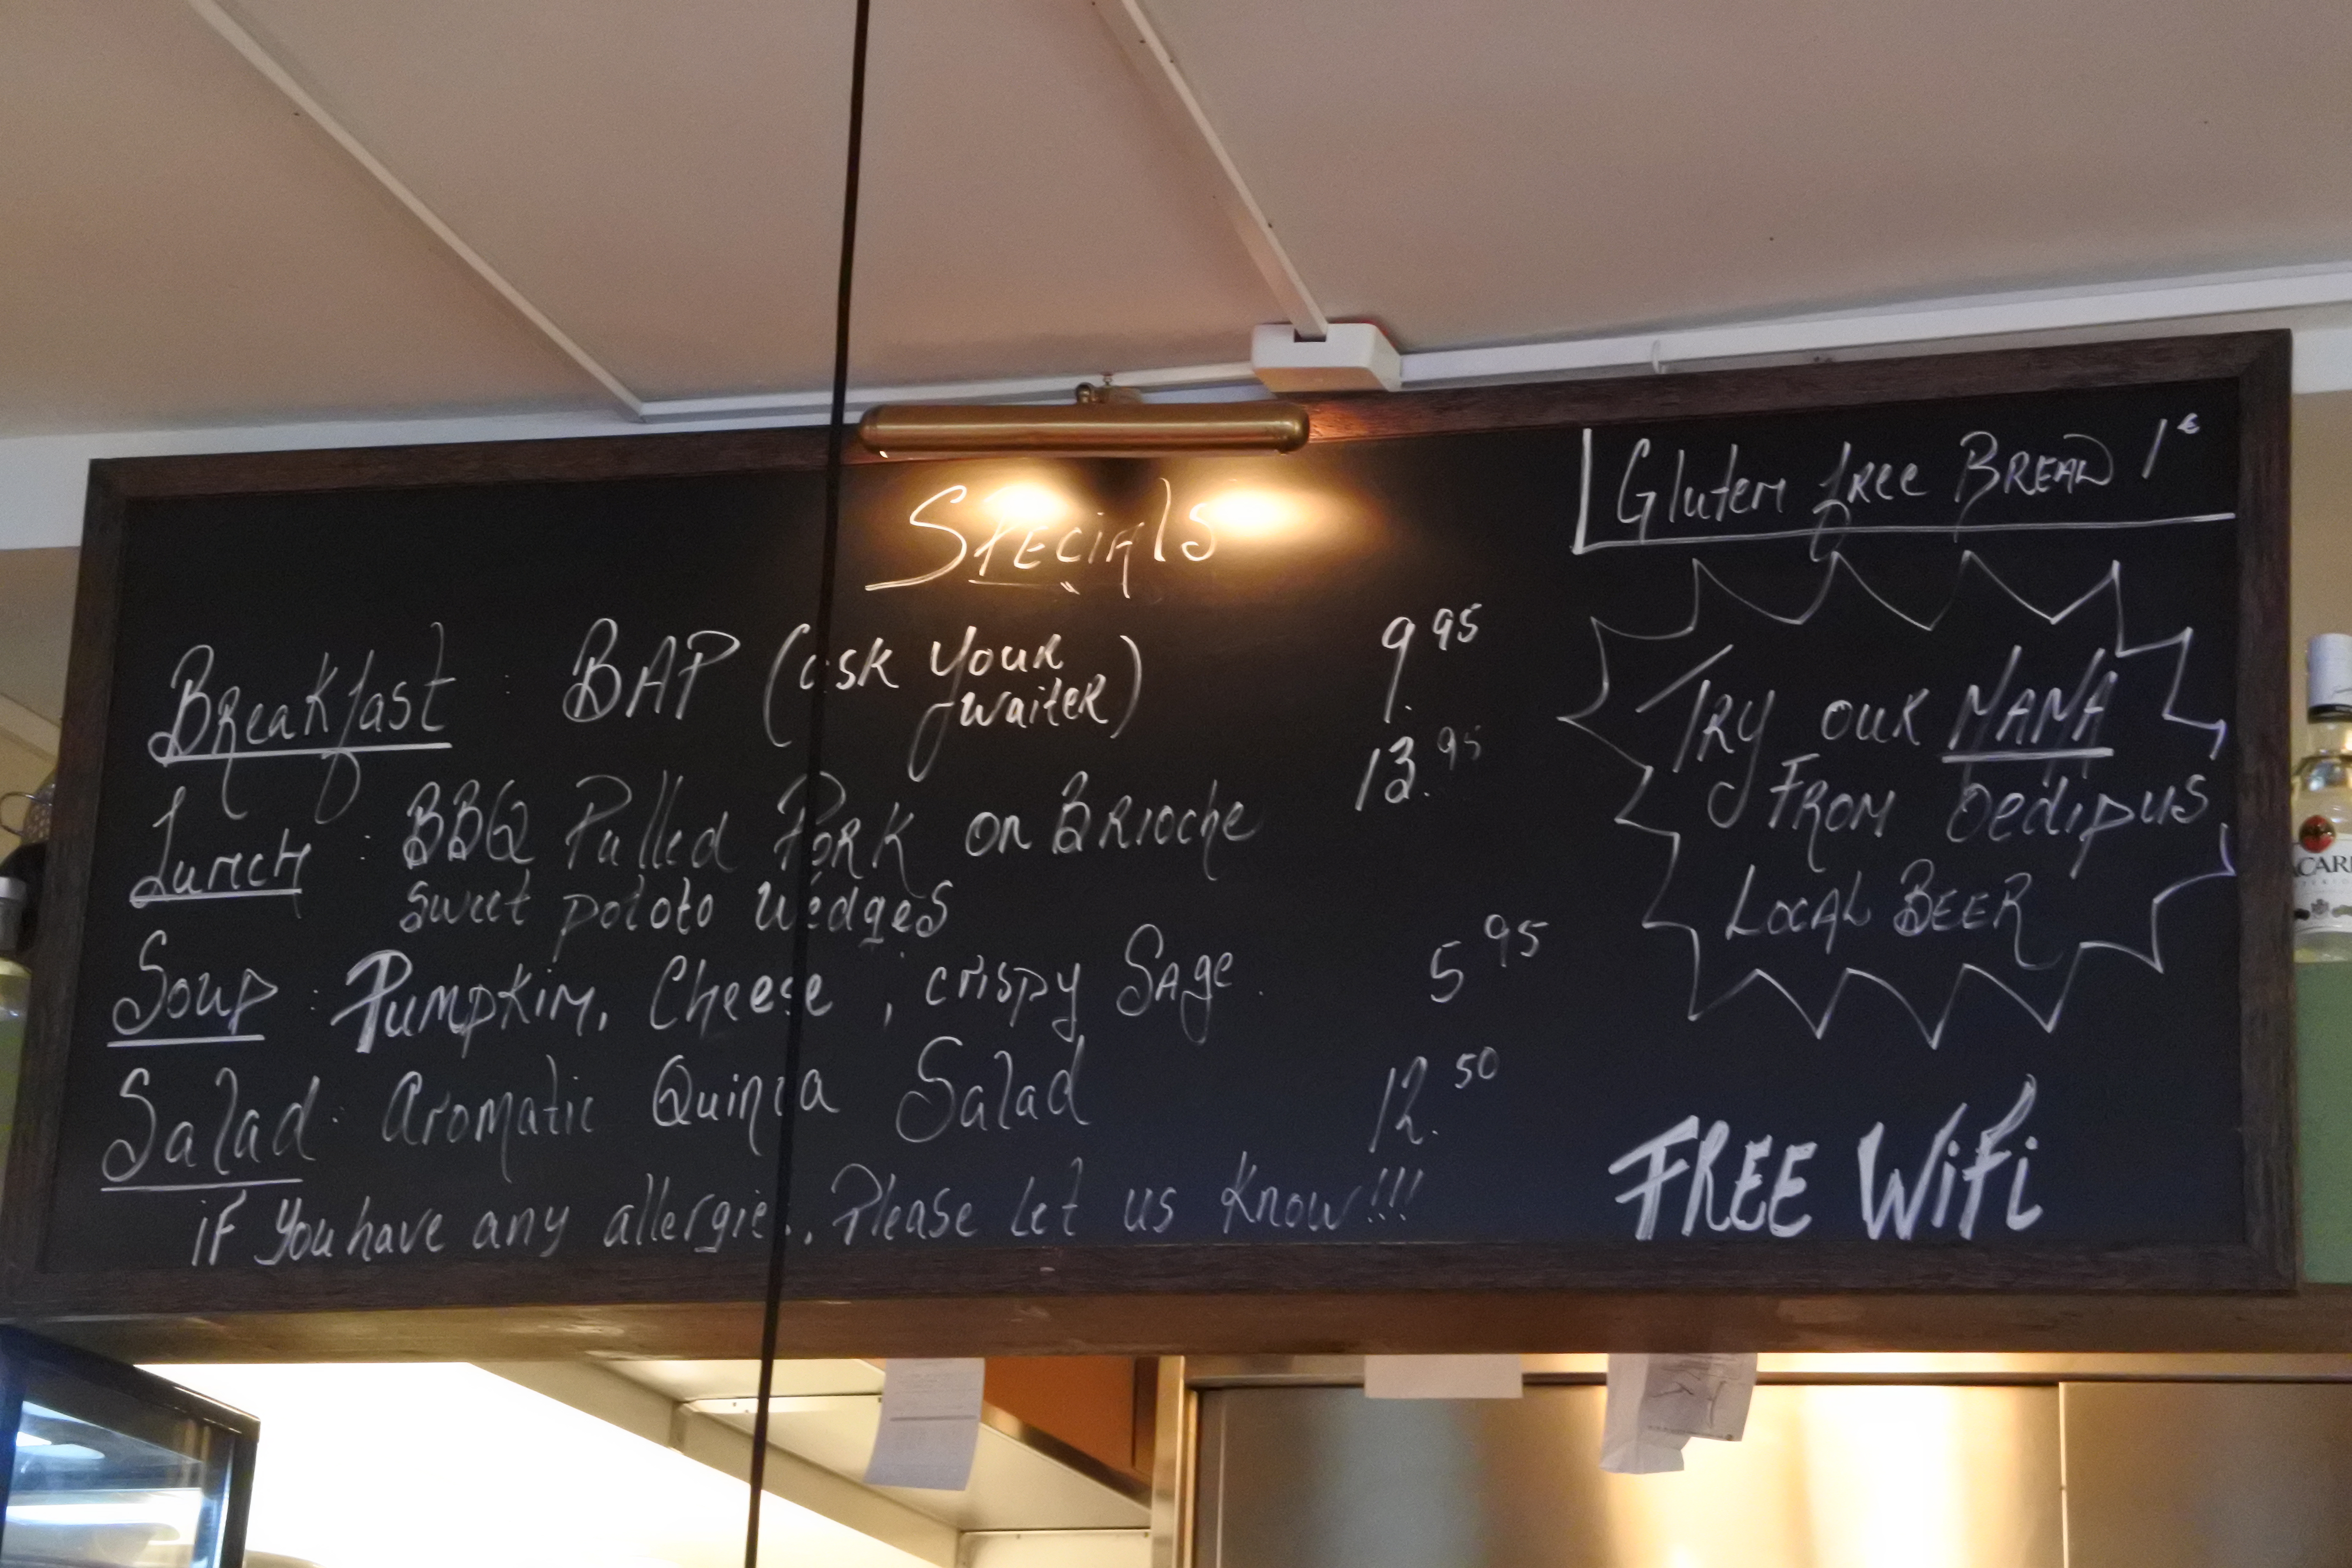 Specials
Breakfast : BAP (ask your waiter) 9.95
Lunch : BBQ Pulled Pork on Brioche 13.95
sweet pototo wedges
Soup : Pumpkin, Cheese, crispy Sage. 5 95
Salad : Aromatic Quinoa Salad 12.50
if you have any allergie.. Please let us know!!!
Gluten free Bread 1€
Try our MAMA
From Oedipus
Local Beer
FREE WiFi